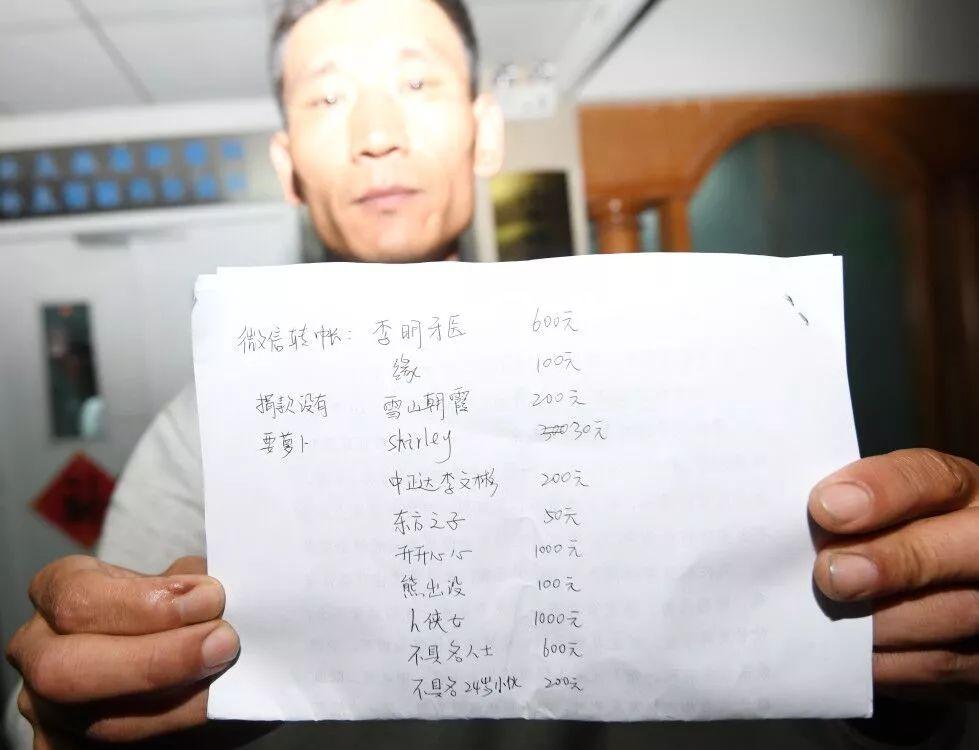 微信转帐: 李明牙医 600元
缘 100元
捐款没有 雪山朝霞 200元
要萝卜 shirley 30元
中正达李文彬 200元
东方之子 50元
开开心心 1000元
熊出没 100元
侠女 1000元
不具名人士 600元
不具名24岁小伙 200元